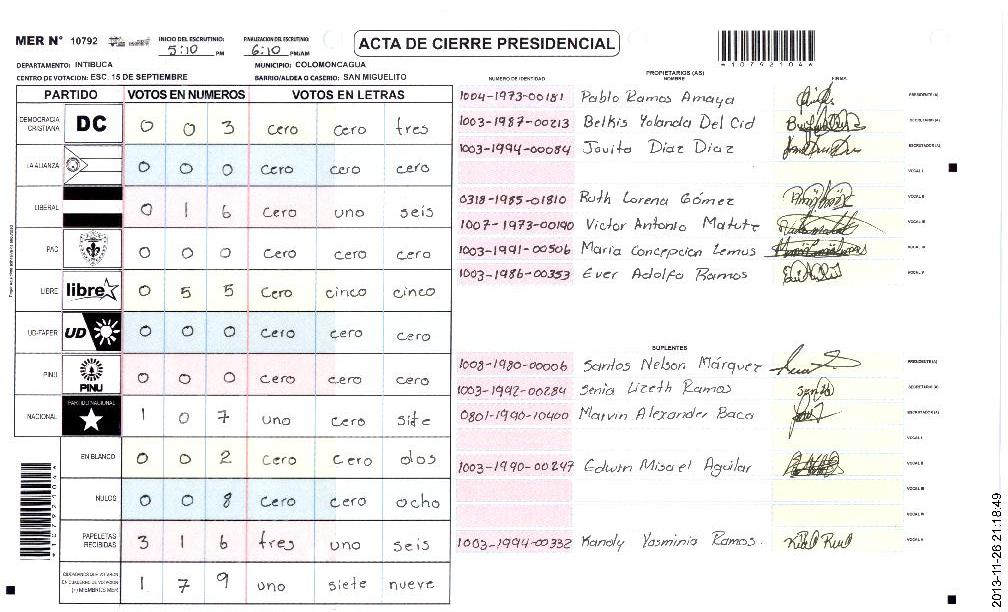 MER N° 10792
INICIO DEL ESCRUTINIO: 5:10 PM
FINALIZACION DEL ESCRUTINIO: 6:10 PM/AM
ACTA DE CIERRE PRESIDENCIAL
*10792104*
DEPARTAMENTO: INTIBUCA
MUNICIPIO: COLOMONCAGUA
CENTRO DE VOTACION: ESC. 15 DE SEPTIEMBRE
BARRIO/ALDEA O CASERIO: SAN MIGUELITO
PARTIDO VOTOS EN NUMEROS VOTOS EN LETRAS
DEMOCRACIA CRISTIANA DC 0 0 3 cero cero tres
LA ALIANZA 0 0 0 cero cero cero
LIBERAL 0 1 6 cero uno seis
PAC 0 0 0 cero cero cero
LIBRE libre 0 5 5 cero cinco cinco
UD-FAPER UD 0 0 0 cero cero cero
PINU PINU 0 0 0 cero cero cero
NACIONAL PARTIDO NACIONAL 1 0 7 uno cero siete
EN BLANCO 0 0 2 cero cero dos
NULOS 0 0 8 cero cero ocho
PAPELETAS RECIBIDAS 3 1 6 tres uno seis
CIUDADANOS QUE VOTARON EN CUADERNO DE VOTACION (+) MIEMBROS MER 1 7 9 uno siete nueve
*10792104*
PROPIETARIOS (AS)
NUMERO DE IDENTIDAD NOMBRE FIRMA
1004-1973-00181 Pablo Ramos Amaya PRESIDENTE (A)
1003-1987-00213 Belkis Yolanda Del Cid SECRETARIO (A)
1003-1994-00084 Jovita Diaz Diaz ESCRUTADOR (A)
VOCAL I
0318-1985-01810 Ruth Lorena Gómez VOCAL II
1007-1973-00190 Victor Antonio Matute VOCAL III
1003-1991-00506 Maria Concepcion Lemus VOCAL IV
1003-1986-00353 Ever Adolfo Ramos VOCAL V
SUPLENTES
1008-1980-00006 Santos Nelson Márquez PRESIDENTE (A)
1003-1992-00284 Senia Lizeth Ramos SECRETARIO (A)
0801-1990-10400 Marvin Alexander Baca ESCRUTADOR (A)
VOCAL I
1003-1990-00247 Edwin Misael Aguilar VOCAL II
VOCAL III
VOCAL IV
1003-1994-00332 Kandy Yasminia Ramos. VOCAL V
2013-11-26 21:18:49